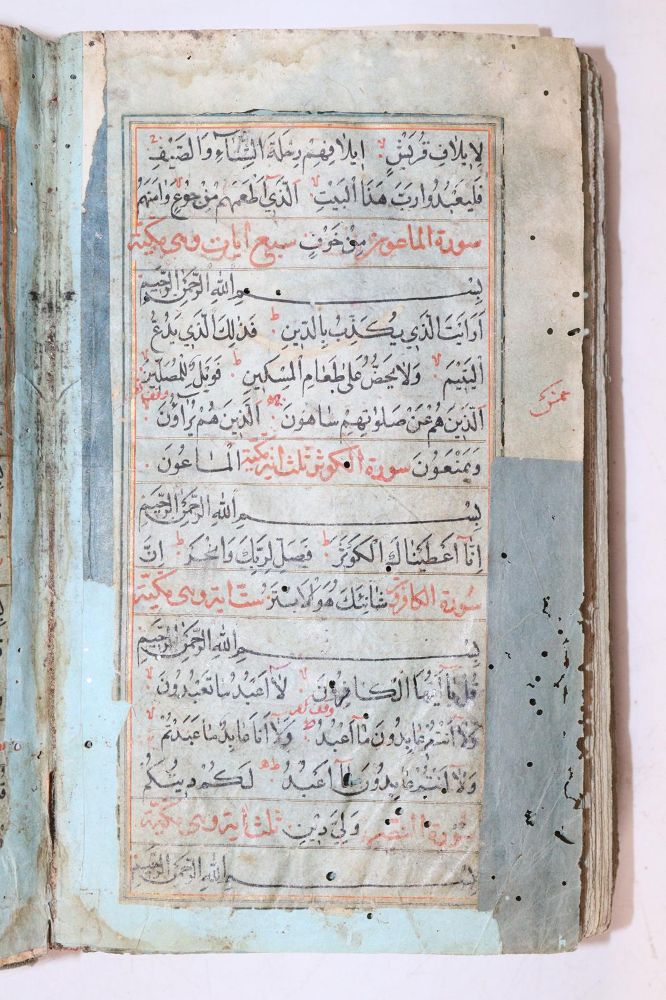 لِإِيلَافِ قُرَيْشٍ إِيلَافِهِمْ رِحْلَةَ الشِّتَاءِ وَالصَّيْفِ
فَلْيَعْبُدُوا رَبَّ هَذَا الْبَيْتِ الَّذِي أَطْعَمَهُمْ مِنْ جُوعٍ وَآمَنَهُمْ
سورة الماعون مِنْ خَوْفٍ سبع ايات وهى مكية
بِسْمِ اللهِ الرَّحْمَنِ الرَّحِيمِ
أَرَأَيْتَ الَّذِي يُكَذِّبُ بِالدِّينِ فَذَلِكَ الَّذِي يَدُعُّ
الْيَتِيمَ وَلَا يَحُضُّ عَلَى طَعَامِ الْمِسْكِينِ فَوَيْلٌ لِلْمُصَلِّينَ
الَّذِينَ هُمْ عَنْ صَلَوتِهِمْ سَاهُونَ الَّذِينَ هُمْ يُرَاؤُنَ
وَيَمْنَعُونَ سورة الكوثر ثلث اية مكية الْمَاعُونَ
بِسْمِ اللهِ الرَّحْمَنِ الرَّحِيمِ
إِنَّا أَعْطَيْنَاكَ الْكَوْثَرَ فَصَلِّ لِرَبِّكَ وَانْحَرْ إِنَّ
سورة الكافرو شَانِئَكَ هُوَ الْأَبْتَرُ ست اية وهى مكية
بِسْمِ اللهِ الرَّحْمَنِ الرَّحِيمِ
قُلْ يَا أَيُّهَا الْكَافِرُونَ لَا أَعْبُدُ مَا تَعْبُدُونَ
وَلَا أَنْتُمْ عَابِدُونَ مَا أَعْبُدُ وَلَا أَنَا عَابِدٌ مَا عَبَدْتُمْ
وَلَا أَنْتُمْ عَابِدُونَ مَا أَعْبُدُ لَكُمْ دِينُكُمْ
سورة النصر وَلِيَ دِينِ ثلث اية وهى مكية
بِسْمِ اللهِ الرَّحْمَنِ الرَّحِيمِ